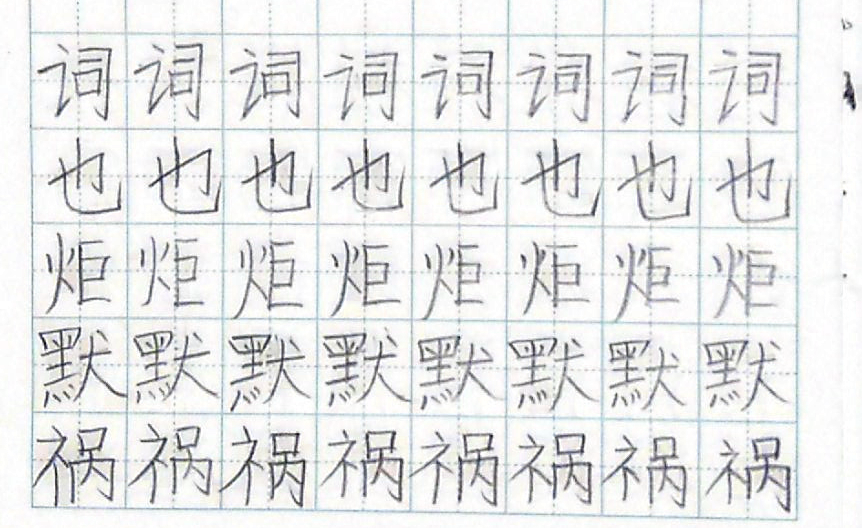 词词词词词词词词
也也也也也也也也
炬炬炬炬炬炬炬炬
默默默默默默默默
祸祸祸祸祸祸祸祸